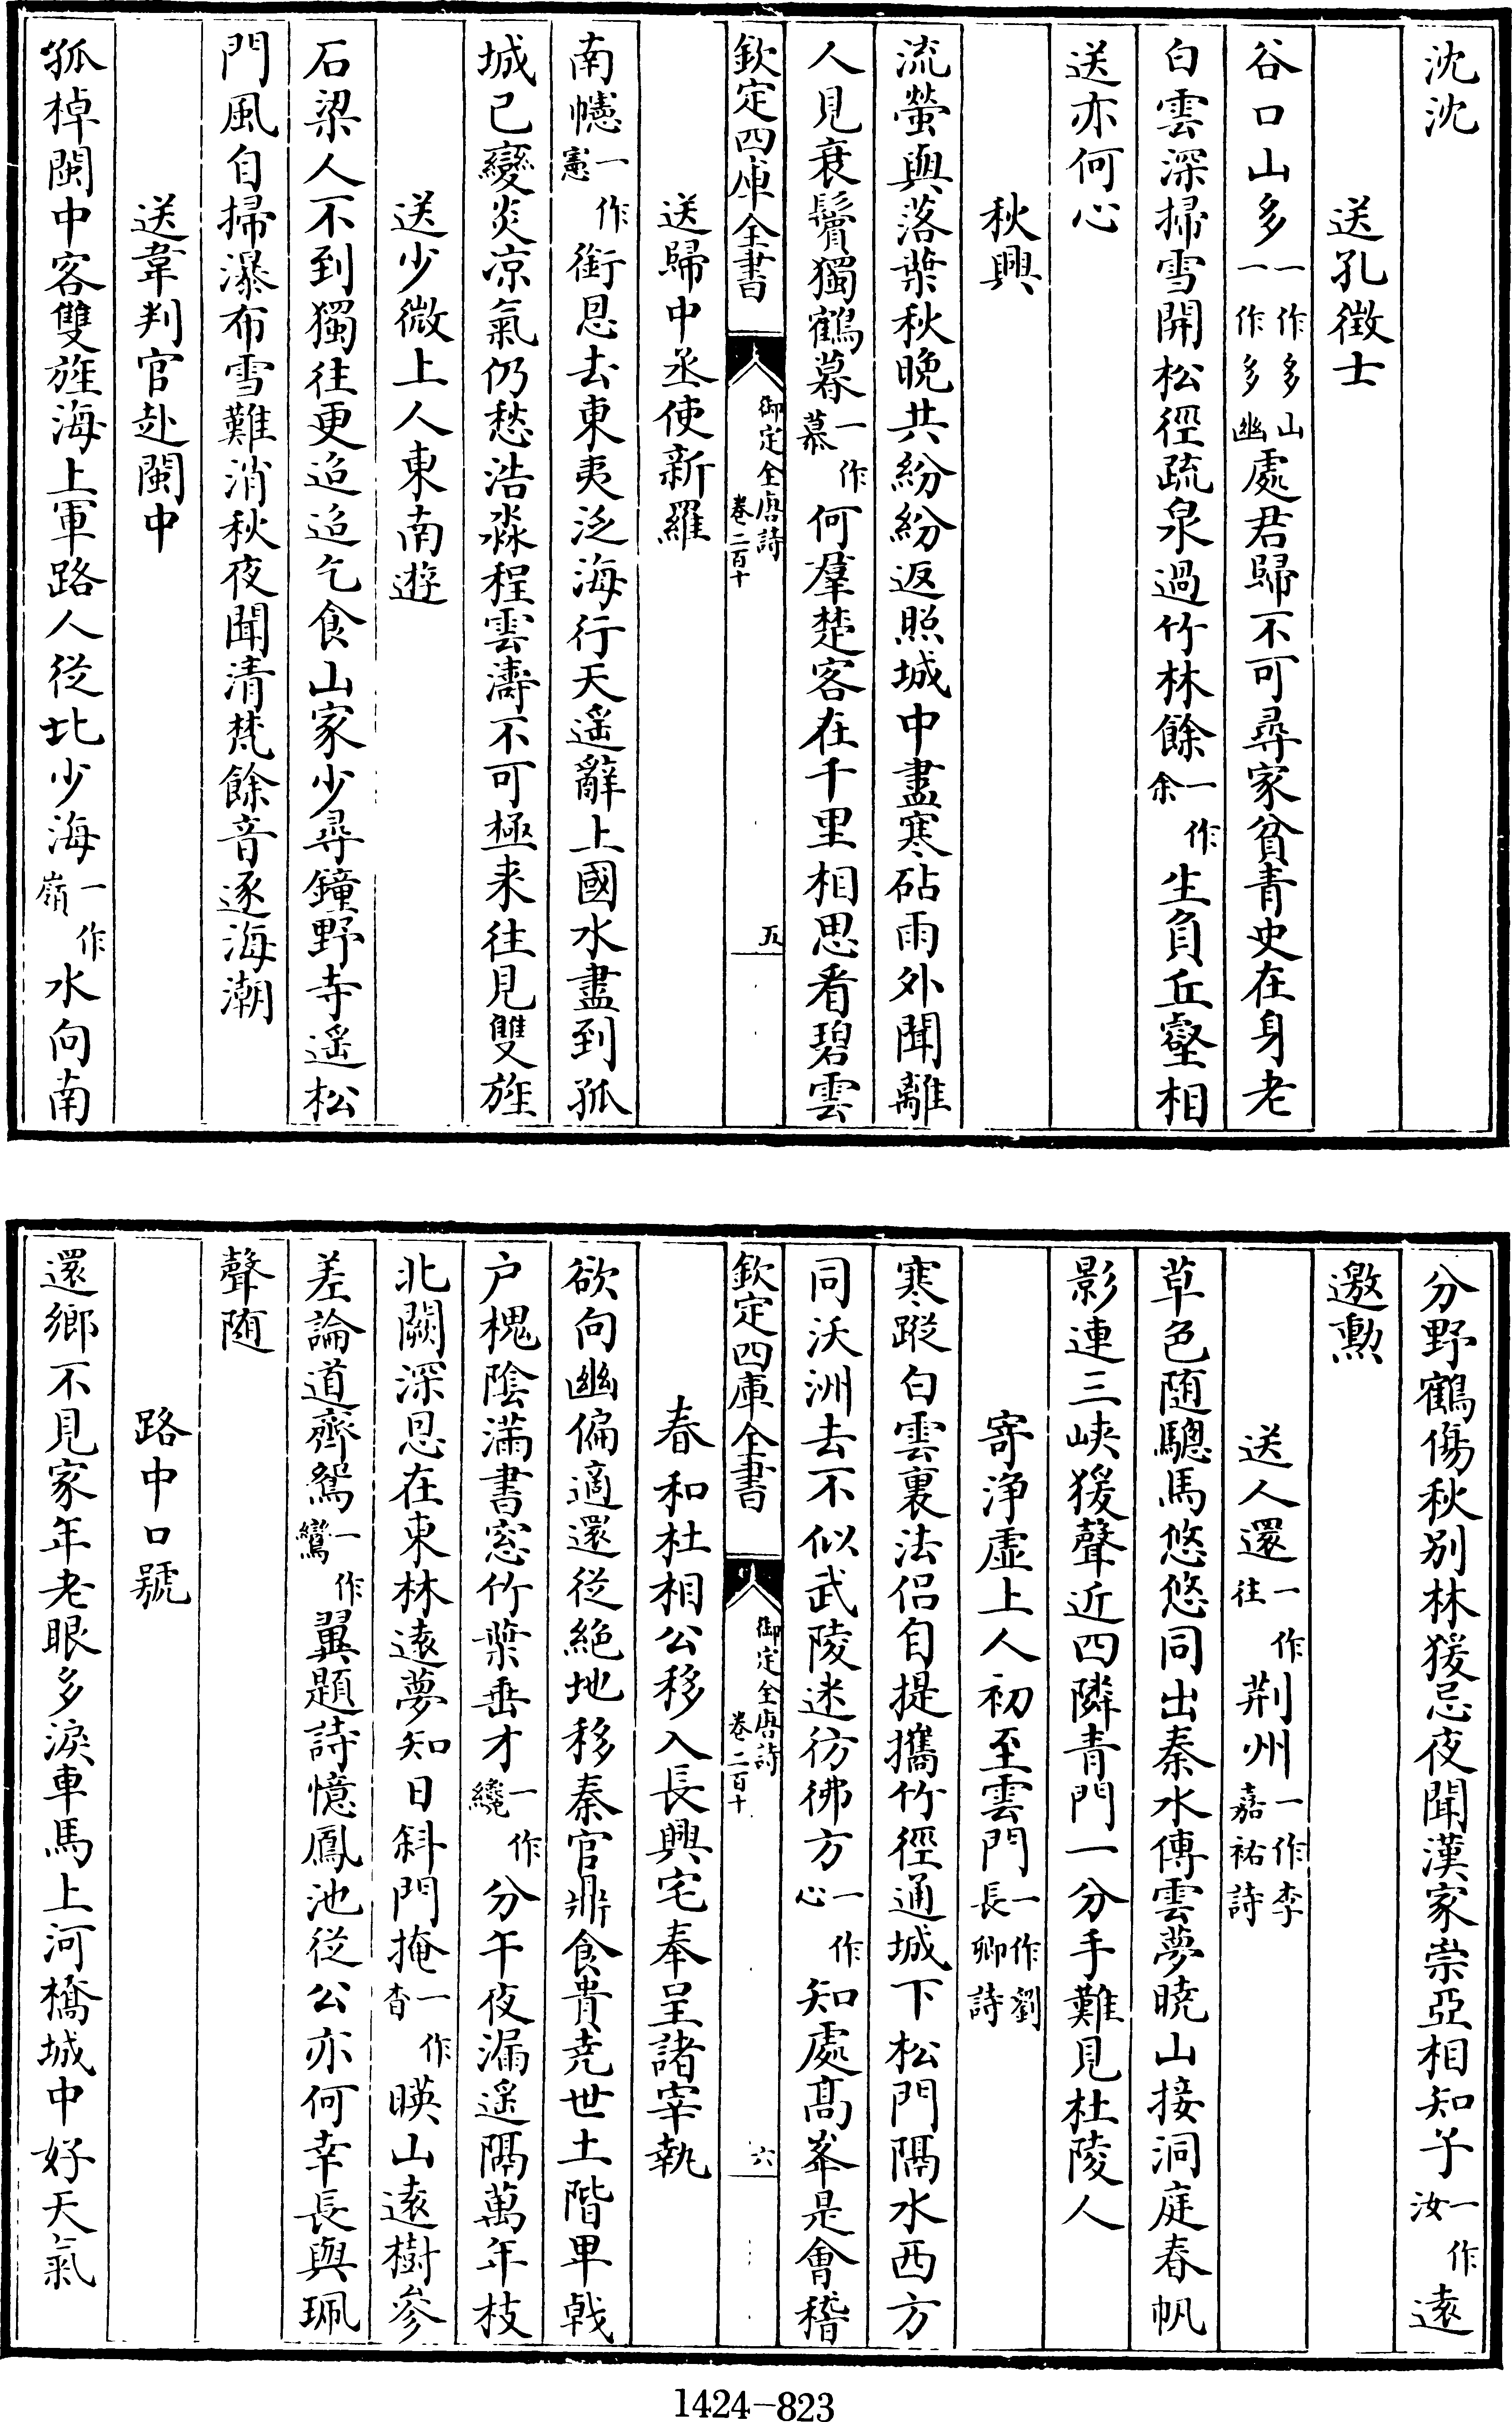 沈沈
送孔徵士
谷口山多一作多山一作多幽處君歸不可尋家貧青史在身老
白雲深掃雪開松徑疏泉過竹林餘一作余生負丘壑相
送亦何心
秋興
流螢與落葉秋晚共紛紛返照城中盡寒砧雨外聞離
人見衰鬢獨鶴暮一作慕何羣楚客在千里相思看碧雲
欽定四庫全書
御定全唐詩
卷二百十
五
送歸中丞使新羅
南幰一作憲銜恩去東夷泛海行天遥辭上國水盡到孤
城已變炎凉氣仍愁浩淼程雲濤不可極来往見雙旌
送少微上人東南遊
石梁人不到獨往更迢迢乞食山家少尋鐘野寺遥松
門風自掃瀑布雪難消秋夜聞清梵餘音逐海潮
送韋判官赴閩中
孤棹閩中客雙旌海上軍路人從北少海一作嶺水向南
分野鶴傷秋别林猨忌夜聞漢家崇亞相知予一作汝遠
邀勲
送人還一作往荆州一作李嘉祐詩
草色随驄馬悠悠同出秦水傳雲夢曉山接洞庭春帆
影連三峽猨聲近四隣青門一分手難見杜陵人
寄浄虚上人初至雲門一作劉長卿詩
寒蹤白雲裏法侣自提攜竹徑通城下松門隔水西方
同沃洲去不似武陵迷彷彿方一作心知處髙峯是會稽
欽定四庫全書
御定全唐詩
卷二百十
六
春和杜相公移入長興宅奉呈諸宰執
欲向幽偏適還從絶地移秦官鼎食貴尭世土階卑戟
户槐陰滿書窓竹葉垂才一作纔分午夜漏遥隔萬年枝
北闕深恩在東林遠夢知日斜門掩一作杳暎山遠樹參
差論道齊鴛一作鸞翼題詩憶鳳池從公亦何幸長與珮
聲随
路中口號
還鄉不見家年老眼多淚車馬上河橋城中好天氣
1424-823